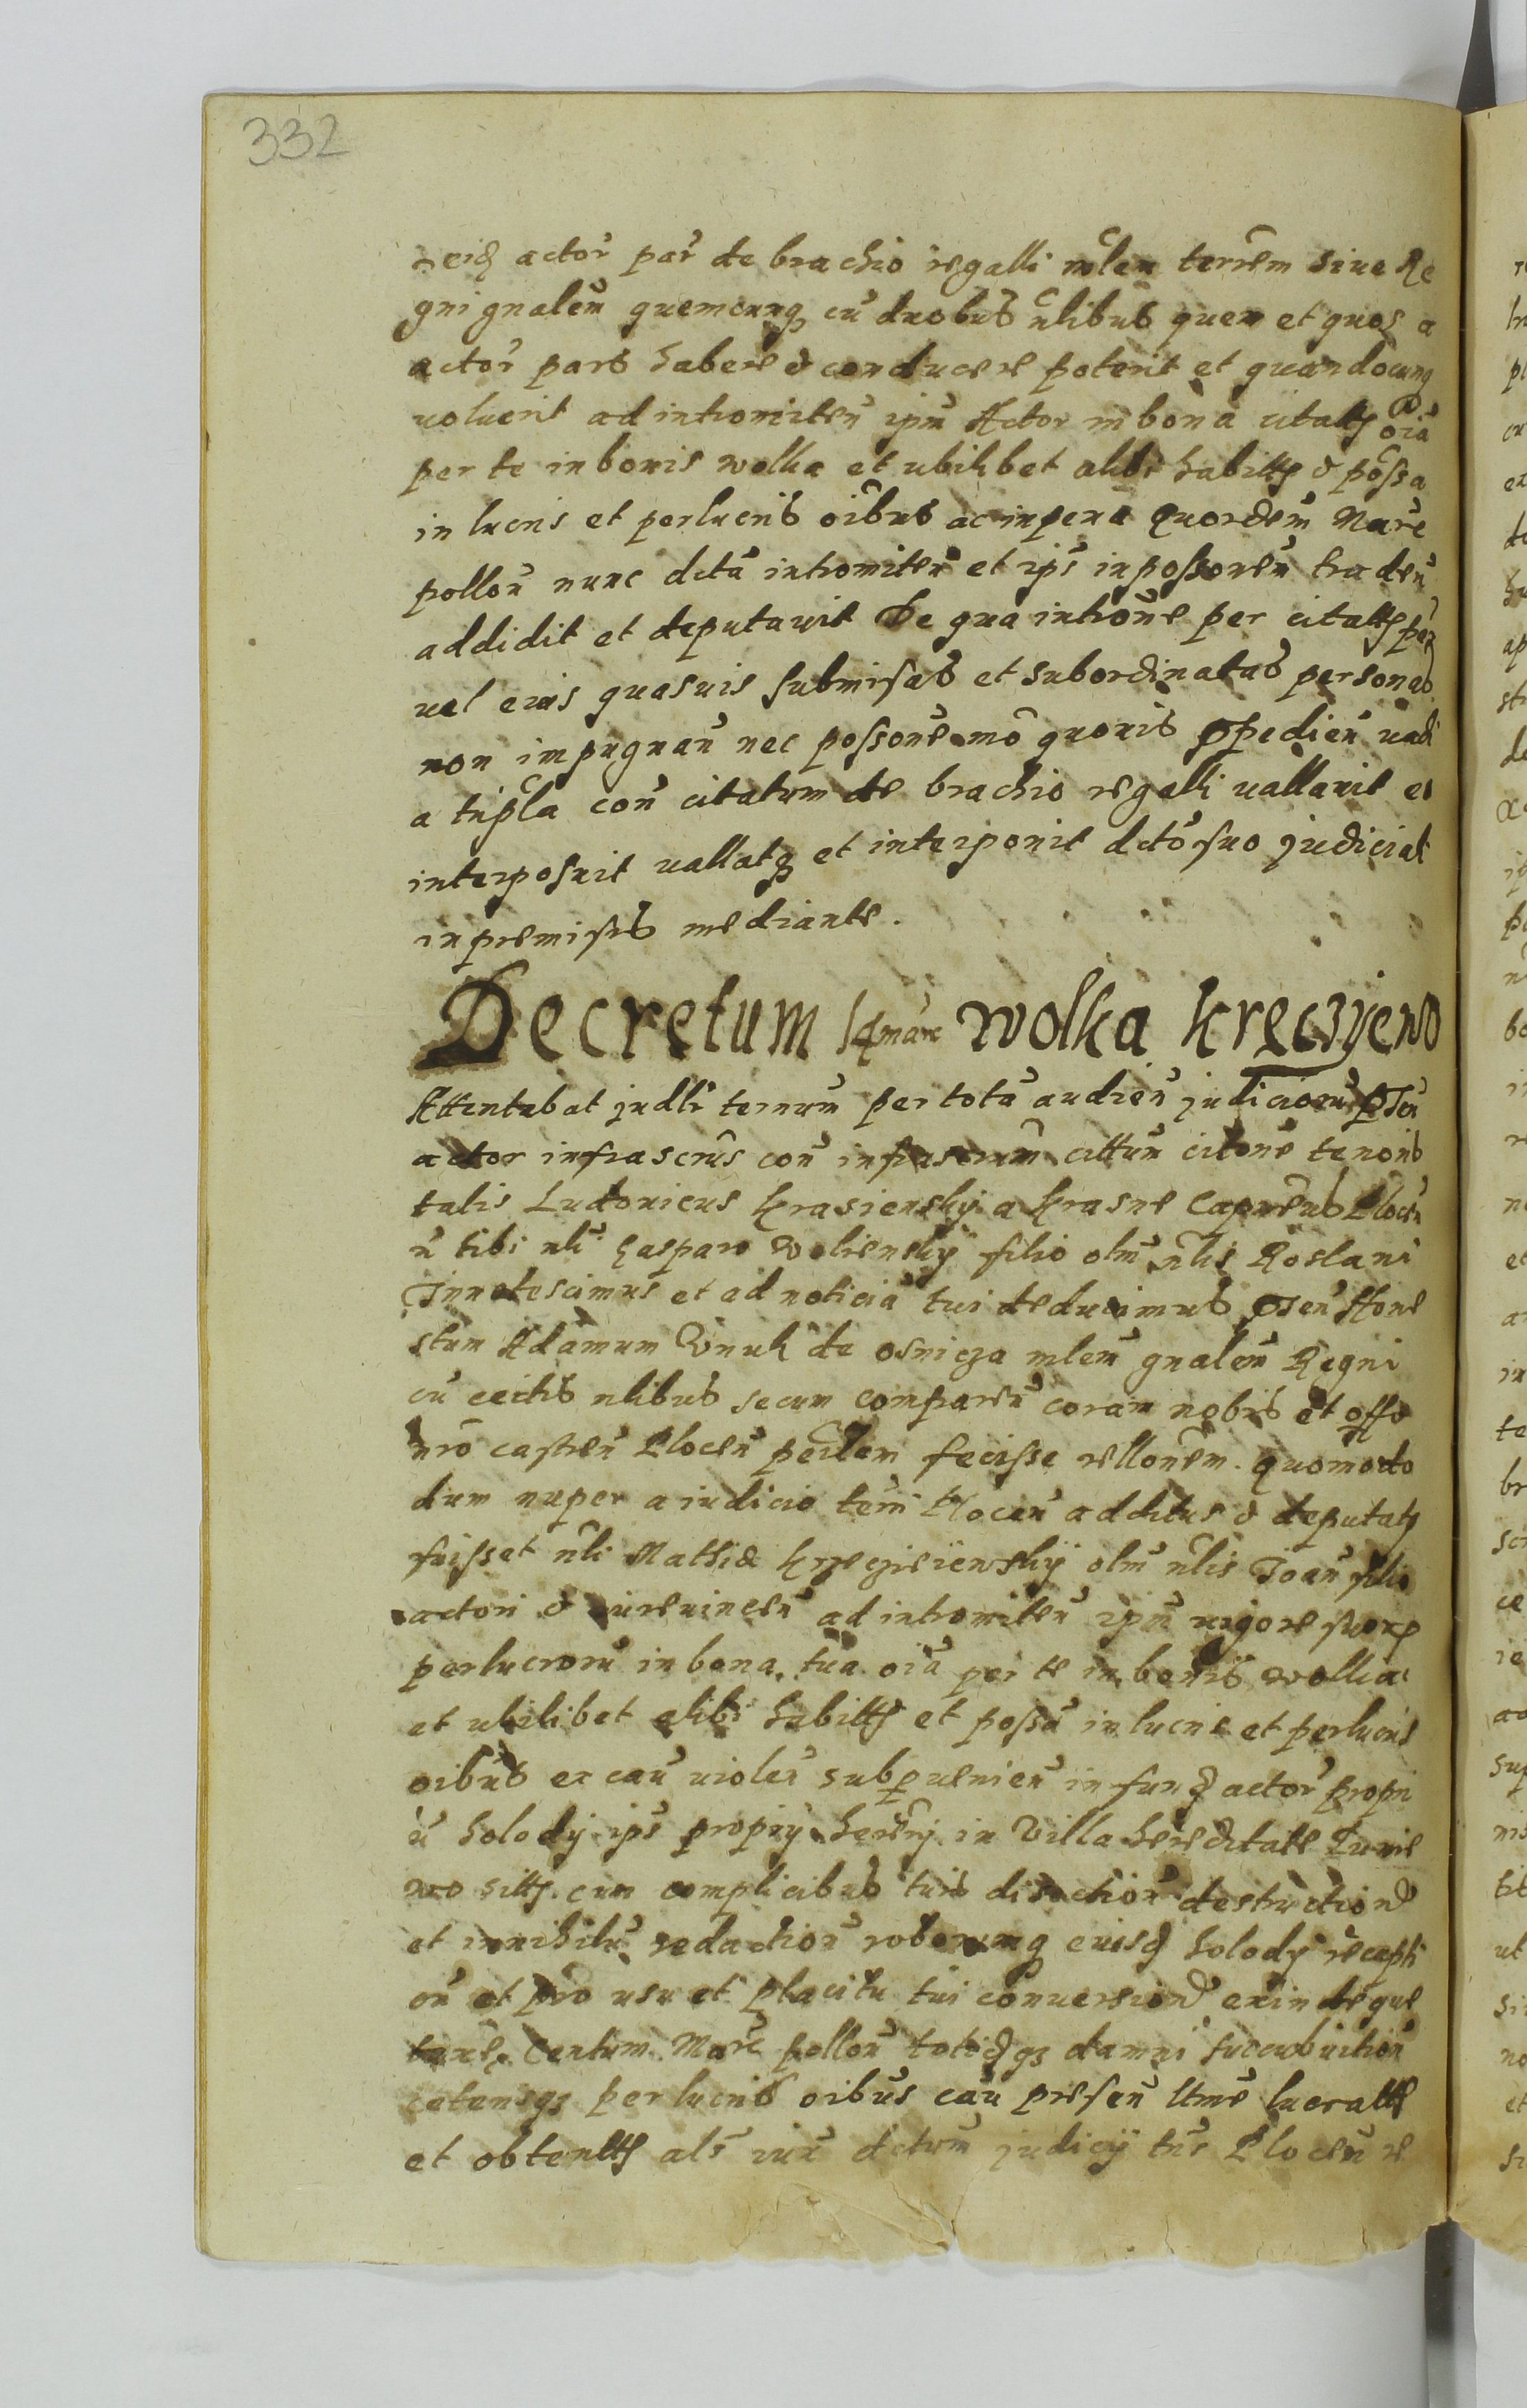 332
actor par de brachio regalli mlem terrem siue Re
gni gnalem quemcunq cu duobus nlibus quem et quos a
actor pars habere & conducere poterit et quandocunq
uoluerit ad intromiten ipm Actor in bona citatq oia
per te in bonis wolka et ubilibet alibi habittq & possa
in lucris et perlucris oibus ac in pena quordem Marc
pollon nunc dcta intromiten et ips in possonem traden
addidit et deputauit De qua introne per citatq per
uel eius quasuis submissas et subordinatas personas
non impugnan nec possone mo quouis ppedien uadi
a tripla con citatum de brachio regalli uallauit et
interposuit uallatq et interponit dcto suo judiciat
in premissis mediante.
Decretum 14 marc wolka kręczyewo
Attentabat judli termum per tota audien judicioru psen
actor infrascrus con infrascrum cittum citone tenoris
talis Ludouicus Krasienskÿ a Krasne Capneus Plocen
n tibi nli Gaspar Wolienskÿ filio olm nlis Roslani
Innotescimus et ad noticia tui deducimus psen Hone
stum Adamum Wnuk de osnicza mlem gnalem Regni
cu certis nlibus secum comparen coram nobis et offo
nro castren Plocen perlem fecisse rellonem. Quomodo
dum nuper a iudicio terri Plocen additus & deputatq
fuisset nli Mathiæ Krzeczieiewskÿ olm nlis Joan filio
actori & iureuincen ad intromiten ipm uigore suorq
perlucroru in bona tua oia per te in bonis wolka
et ubilibet alibi habittq et possa in lucris et perlucris
oibus ex cau violen subpuenien in fund actor propri
a holody ips proprÿ herrj in Villa hereditate
wo sittq cum complicibus tuis disiection destruction
et in nihilu redaction roborumq eiusd holodÿ recepti
on et pro usu et placitu tui conuersion exindeque
taxe Centum Marc pollon totidqz damni succubuition
ceterisqz perlucris oibus cau presen ltme lucrattq
et obtenttq als iux dctum judicÿ tris Plocen e